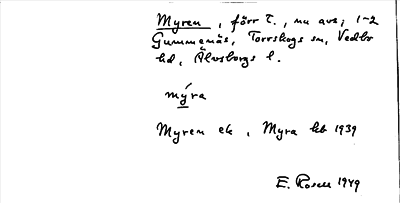 Myren, förr t., nu avs; 1-2
Gummenäs, Torrskogs sn, Vedbo
hd, Älvsborgs l.
mýra
Myren ek, Myra kb 1939
E. Rosell 1949